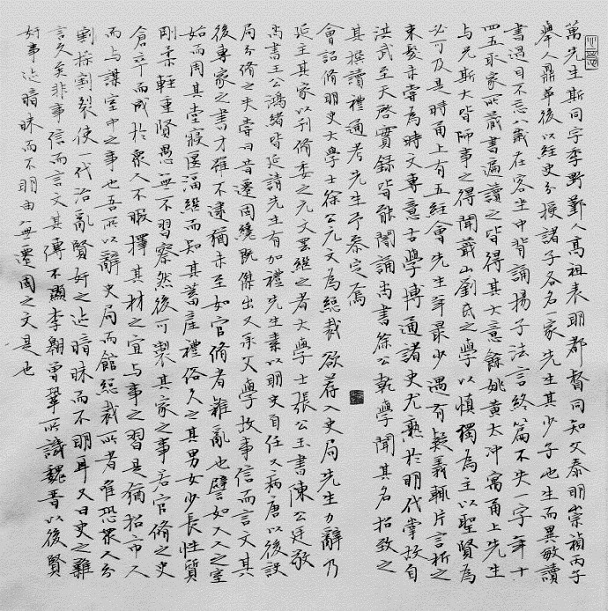 萬先生斯同字季野鄞人高祖表明都督同知父泰明崇禎丙子
舉人鼎革後以經史分授諸子各名一家先生其少子也生而異敏讀
書過目不忘八歲在客坐中背誦揚子法言終篇不失一字年十
四五取家所藏書遍讀之皆得其大意餘姚黃太沖寓甬上先生
与兄斯大皆師事之得聞蕺山劉氏之學以慎獨為主以聖賢為
必可及是時甬上有五經會先生年最少遇有疑義輒片言析之
束髮未嘗為時文專意古學博通諸史尤熟於明代掌故自
洪武至天啓實錄皆能闇誦尚書徐公乾學聞其名招致之
其撰讀禮通考先生予參定焉
會詔修明史大學士徐公元文為總裁欲荐入史局先生力辭乃
延主其家以刊修委之元文罷繼之者大學士張公玉書陳公廷敬
尚書王公鴻緒皆延請先生有加禮先生素以明史自任又病唐以後設
局分修之失嘗曰昔遷固纔既傑出又承父學故事信而言文其
後專家之書才雖不逮猶未至如官修者雜亂也譬如入人之室
始而周其堂寢匽湢繼而知其蓄產禮俗久之其男女少長性質
剛柔輕重賢愚無不習察然後可製其家之事若官修之史
倉卒而成於衆人不暇擇其材之宜与事之習是猶招市人
而与謀室中之事也吾所以辭史局而館總裁所者唯恐衆人分
割操割裂使一代治亂賢奸之迹暗昧而不明耳又曰史之難
言久矣非事信而言文其傳不顯李翱曾鞏所譏魏晉以後賢
奸事迹暗昧而不明由無遷固之文是也